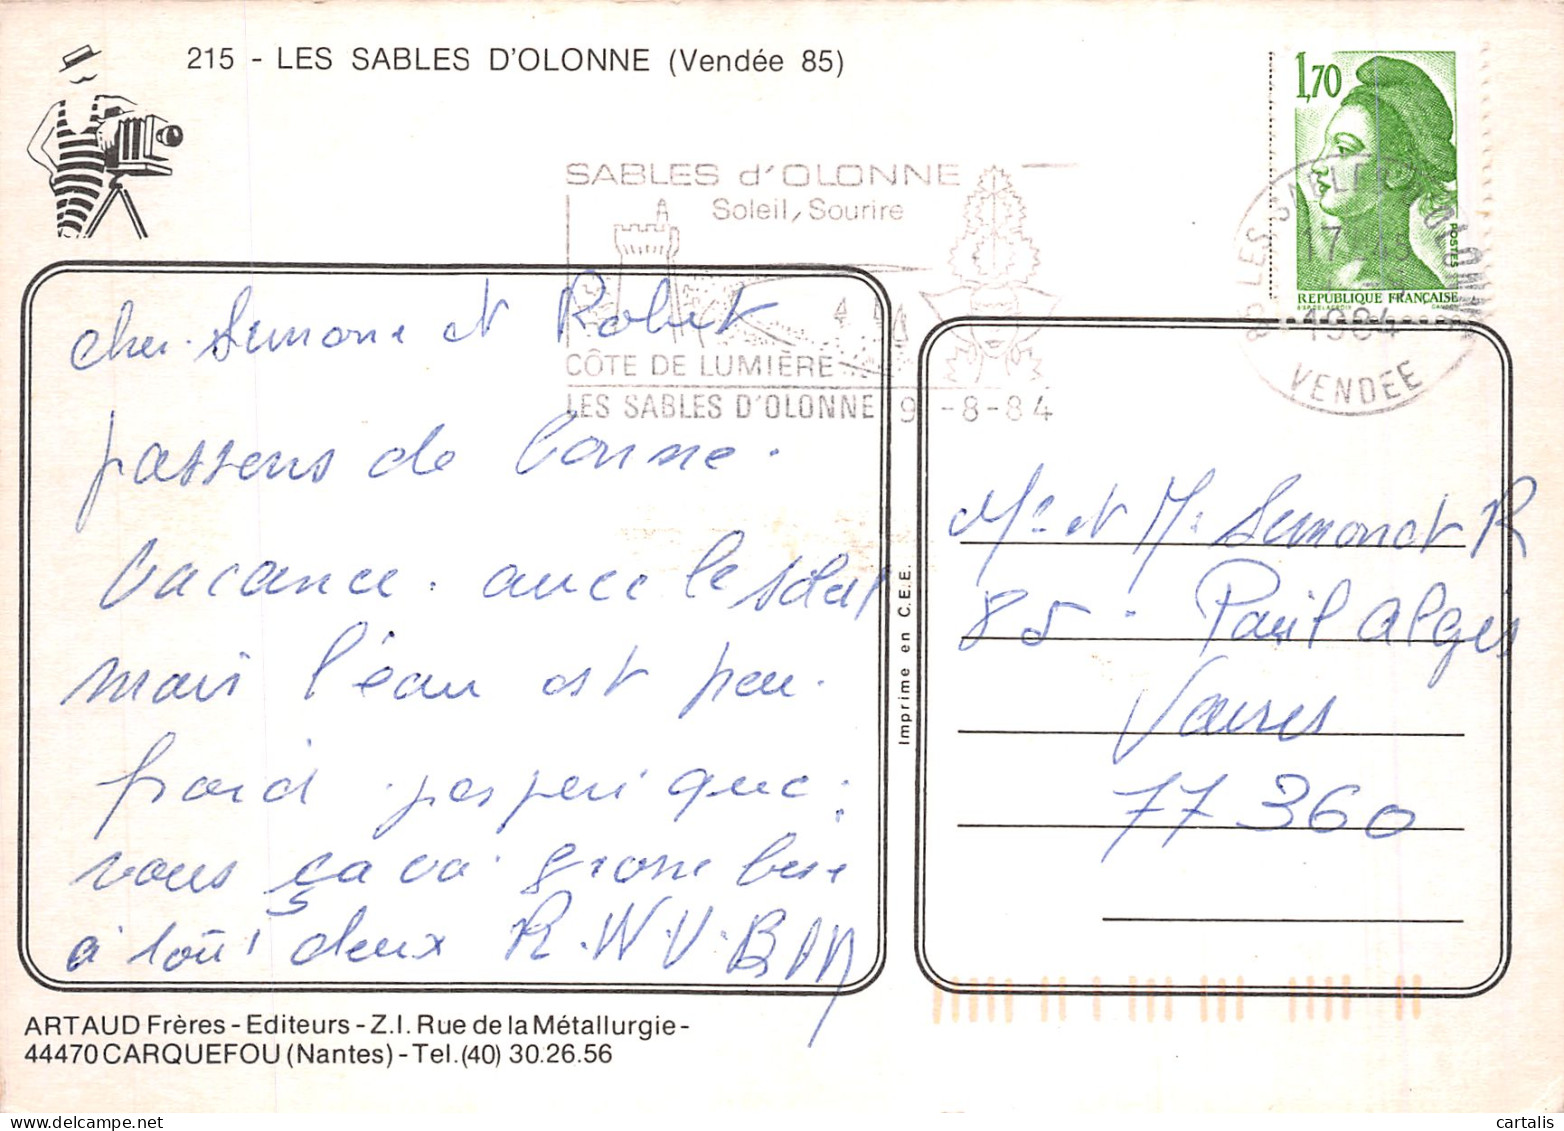 215 - LES SABLES D'OLONNE (Vendée 85)
1,70
POSTES
REPUBLIQUE FRANÇAISE
SABLES d'OLONNE
Soleil, Sourire
CÔTE DE LUMIÈRE
LES SABLES D'OLONNE 9 -8-84
LES SABLES D'OLONNE
17
1984
VENDÉE
cher Simone et Robert
passons de bonne
vacance. avec le soleil
mais l'éau est peu
froid. j'esper que
vous ça va. grosse bise
à tout deux R.W.V.B.M
Mr et Me Simonet R
85 Paul algis
Vaires
77 360
Imprime en C.E.E.
ARTAUD Frères - Editeurs - Z.I. Rue de la Métallurgie -
44470 CARQUEFOU (Nantes) - Tel. (40) 30.26.56
cartalis